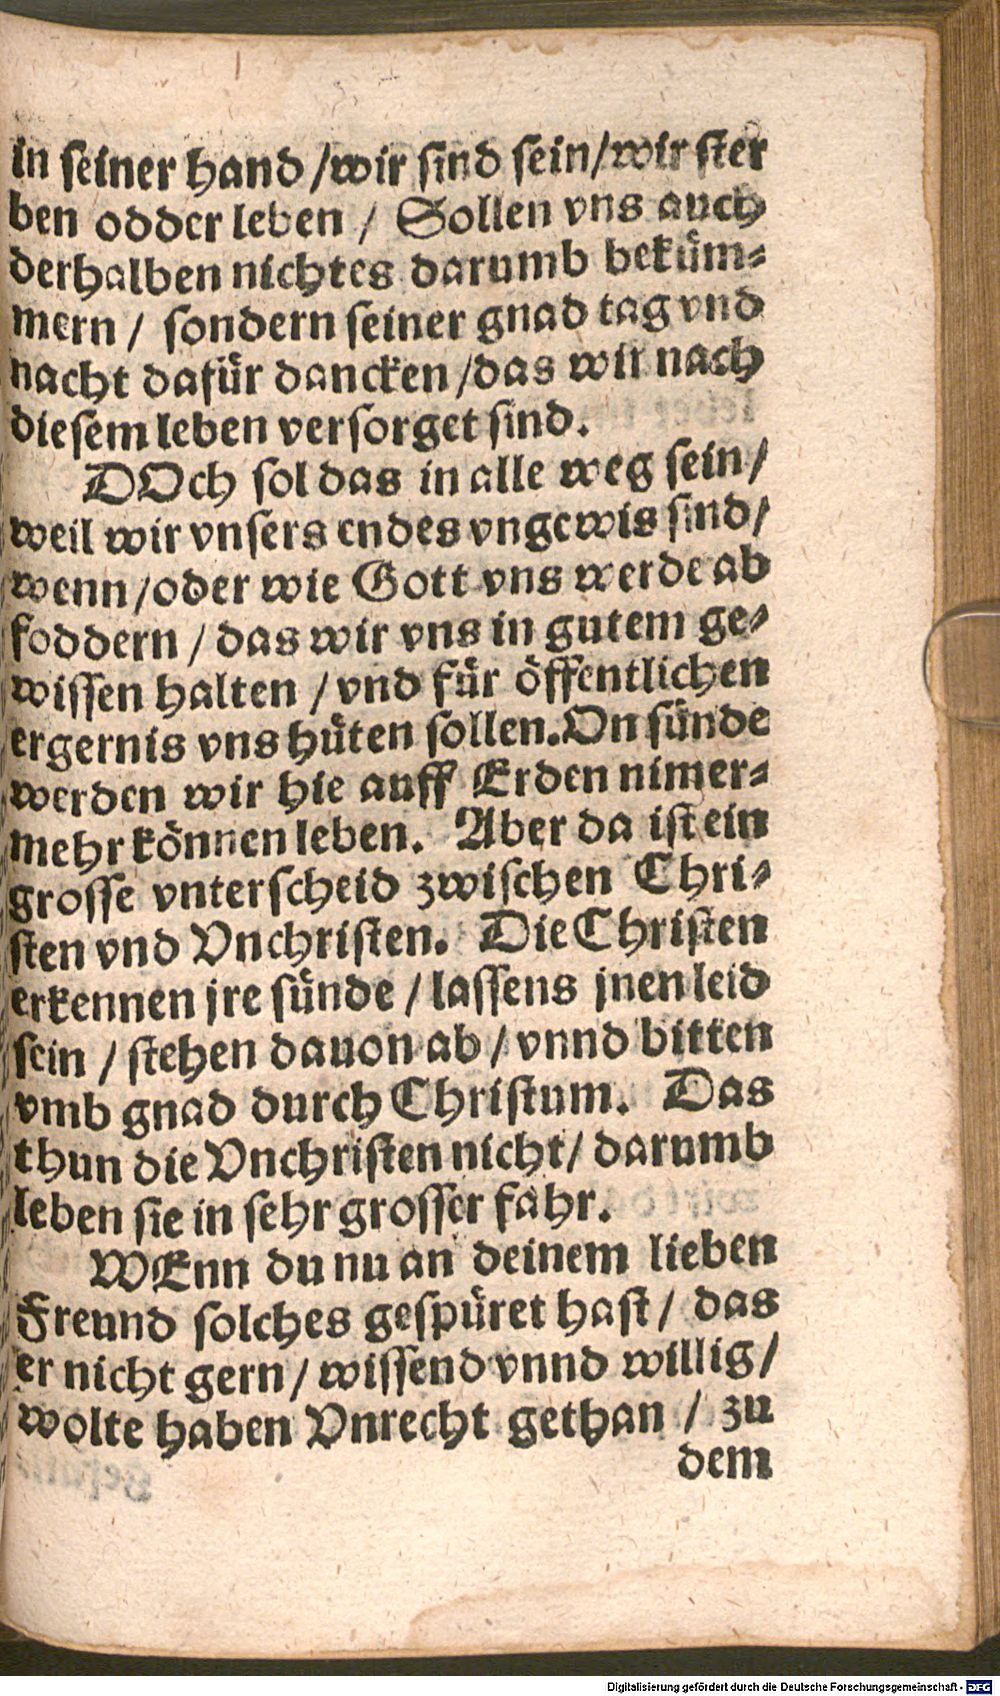 in seiner hand /wir sind sein/wir ster
ben odder leben / Sollen vns auch
derhalben nichtes darumb beküm⸗
mern / sondern seiner gnad tag vnd
nacht dafür dancken /das wir nach
diesem leben versorget sind.
DOch sol das in alle weg sein/
weil wir vnsers endes vngewis sind/
wenn/oder wie Gott vns werde ab
foddern / das wir vns in gutem ge⸗
wissen halten / vnd für öffentlichen
ergernis vns hüten sollen. On sünde
werden wir hie auff Erden nimer⸗
mehr können leben. Aber da ist ein
grosse vnterscheid zwischen Chri⸗
sten vnd Vnchristen. Die Christen
erkennen jre sünde / lassens jnen leid
sein / stehen dauon ab / vnnd bitten
vmb gnad durch Christum. Das
thun die Vnchristen nicht/ darumb
leben sie in sehr grosser fahr.
WEnn du nu an deinem lieben
Freund solches gespüret hast/ das
er nicht gern/ wissend vnnd willig/
wolte haben Vnrecht gethan / zu
dem
Digitalisierung gefördert durch die Deutsche Forschungsgemeinschaft - DFG